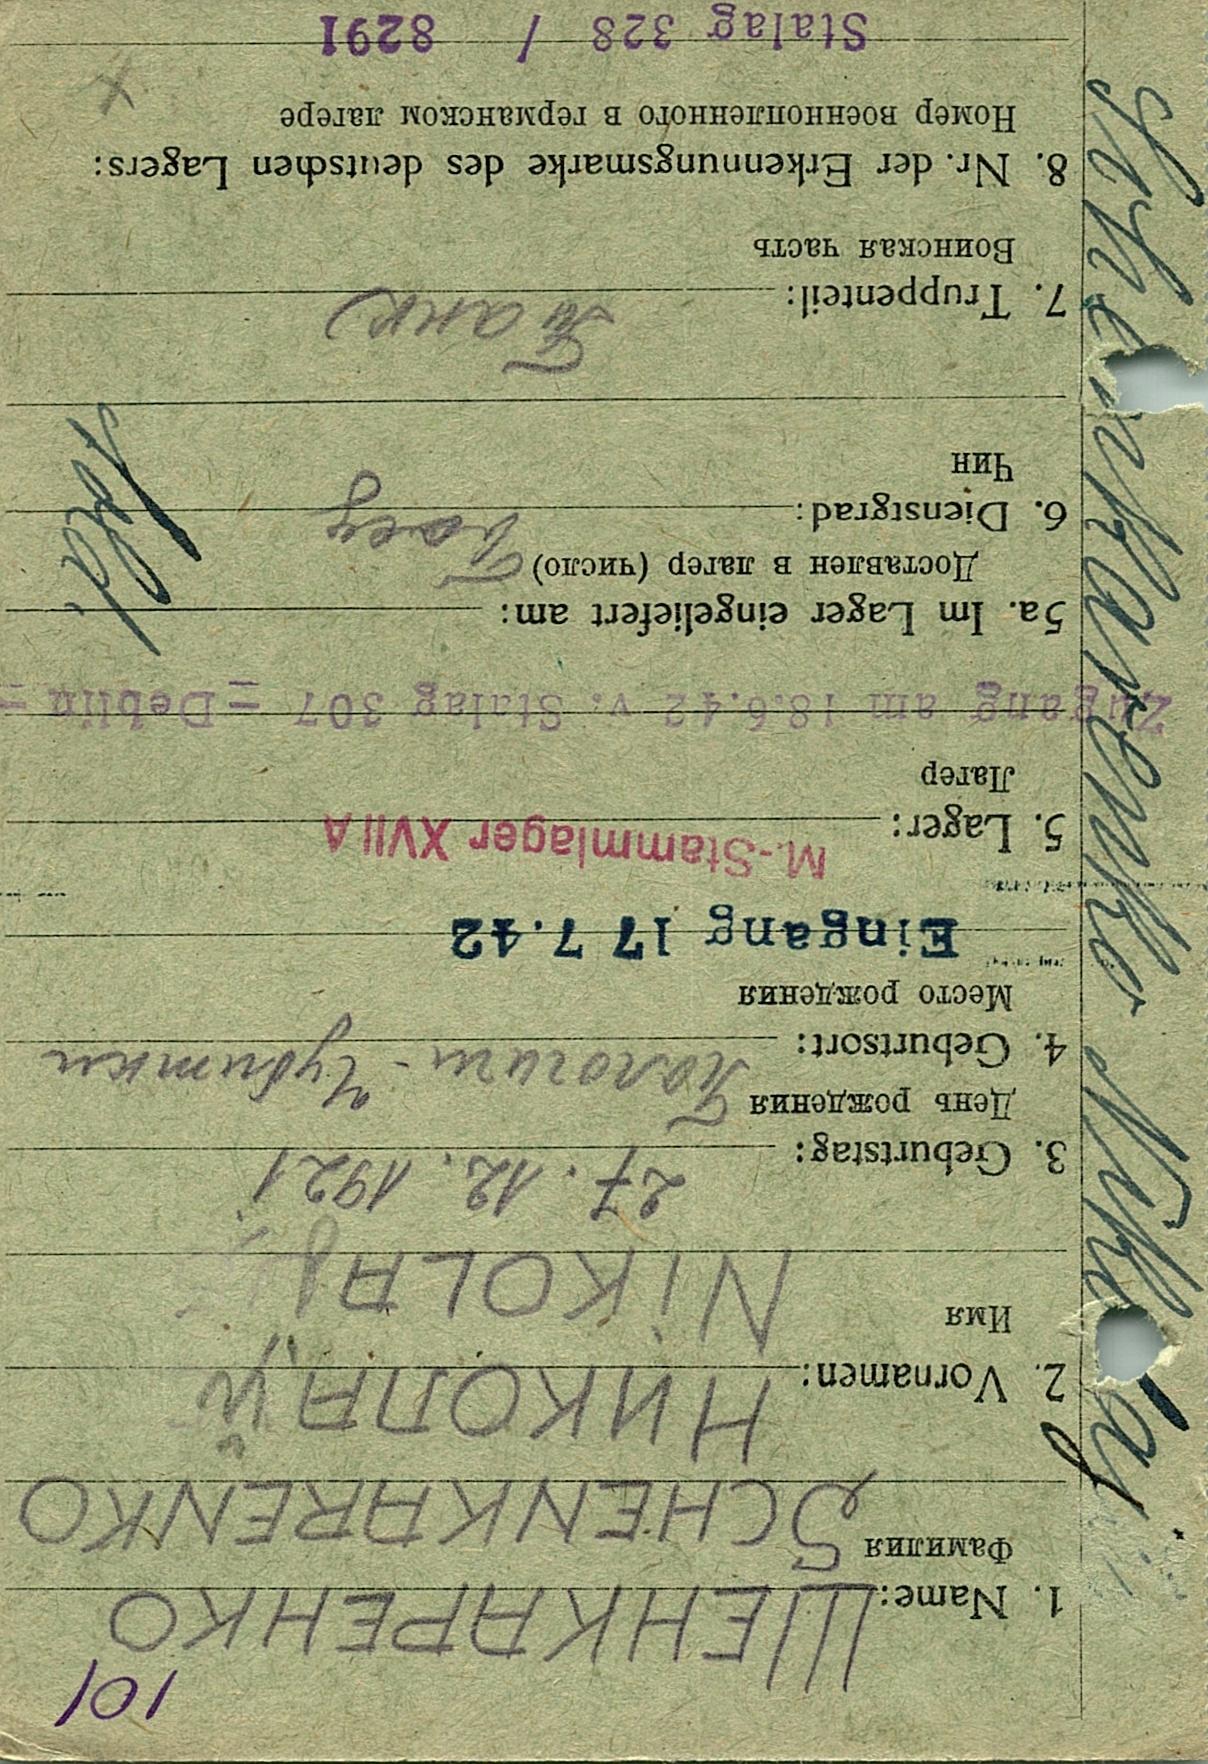 101
1. Name: ШЕНКАРЕНКО
Фамилия
SCHENKARENKO
2. Vornamen: НИКОЛАЙ
Имя
NIKOLAJ
3. Geburtstag: 27. 12. 1921
День рождения
4. Geburtsort:
Место рождения
Eingang 17 7.42
5. Lager: M.-Stammlager XVII A
Лагер
Zugang am 18.6.42 v. Stalag 307 =Deblin =
5a. Im Lager eingeliefert am:
Доставлен в лагер (число)
6. Dienstgrad: Боец
Чин
Sold.
7. Truppenteil: Танк
Воинская часть
8. Nr. der Erkennungsmarke des deutschen Lagers:
Номер военнопленного в германском лагере
X
Stalag 328 / 8291
Schenkarenko Nikolaj